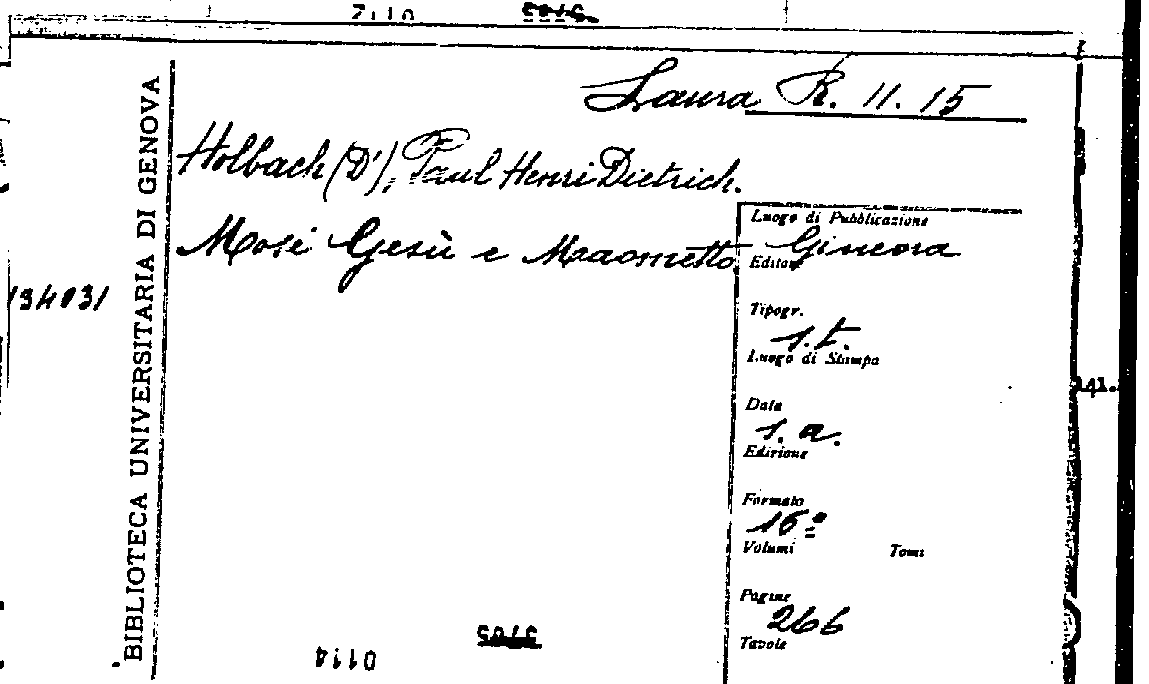 Laura R. 11. 15
Holbach (D'), Paul Henri Dietrich.
Mosè Gesù e Maometto
BIBLIOTECA UNIVERSITARIA DI GENOVA
Luogo di Pubblicazione
Ginevra
Editore
Tipogr.
s.t.
Luogo di Stampa
Data
s. a.
Edizione
Formato
16º
Volumi Tomi
Pagine
266
Tavole
141.
0114